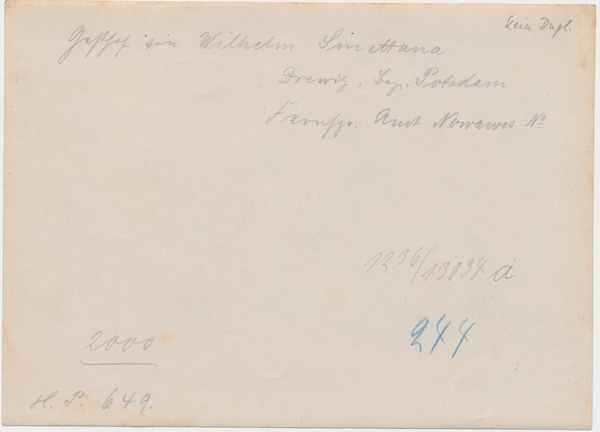 Kein Dupl.
Gasthof von Wilhelm Smettana
Drewitz, Bez. Potsdam
Fernspr. Amt Nowawes No
1236/13034 a
244
2000
H. P. 649.